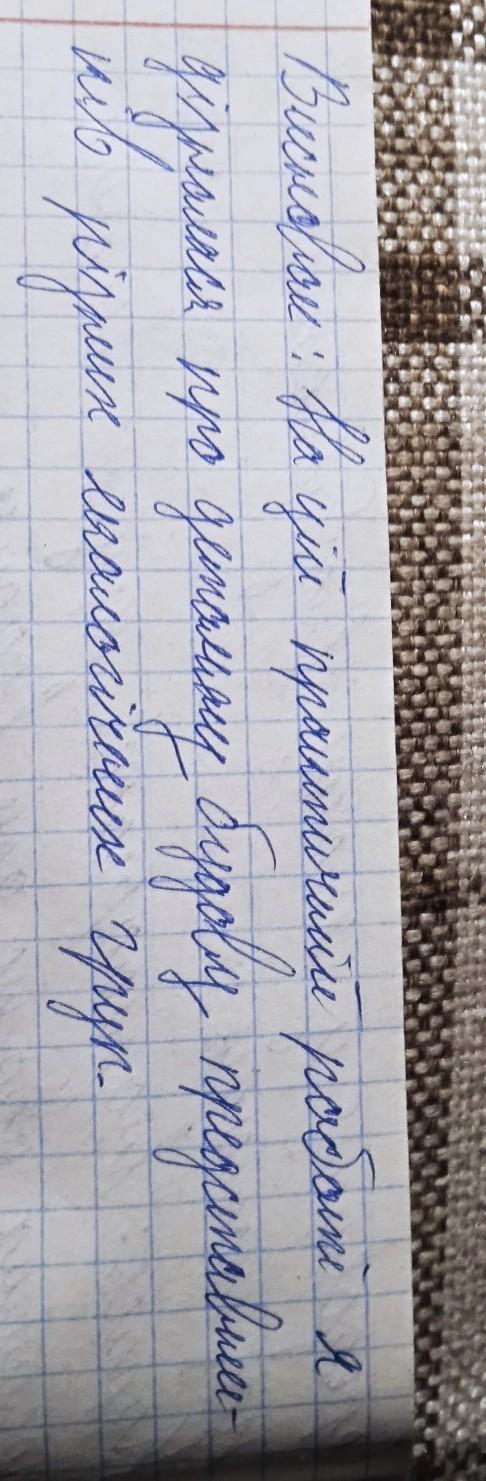 Висновок: На цій практичній роботі я
дізналася про детальну будову представни-
ків різних екологічних груп.